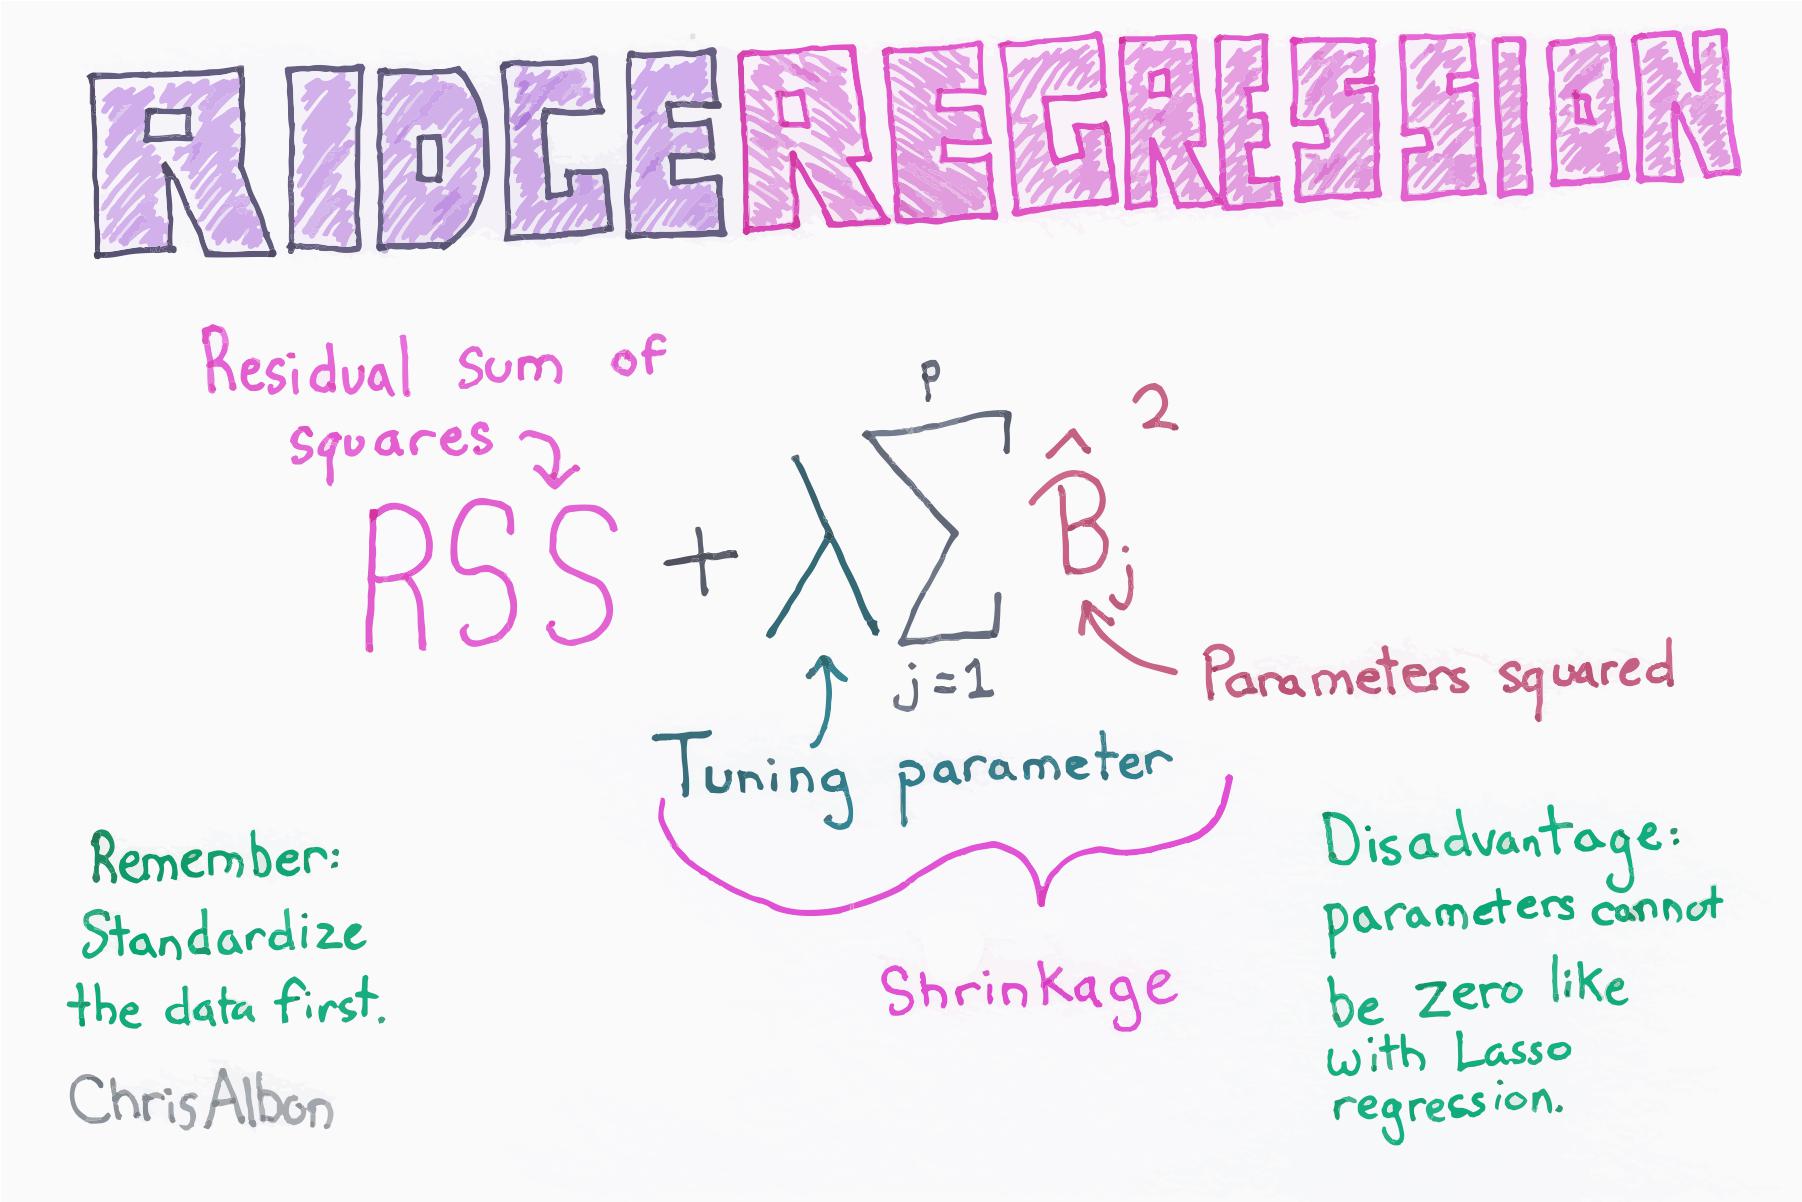 RIDGE REGRESSION
Residual sum of
squares
RSS + λ Σ B̂j²
p
j=1
Parameters squared
Tuning parameter
Shrinkage
Remember:
Standardize
the data first.
Disadvantage:
parameters cannot
be zero like
with Lasso
regression.
ChrisAlbon